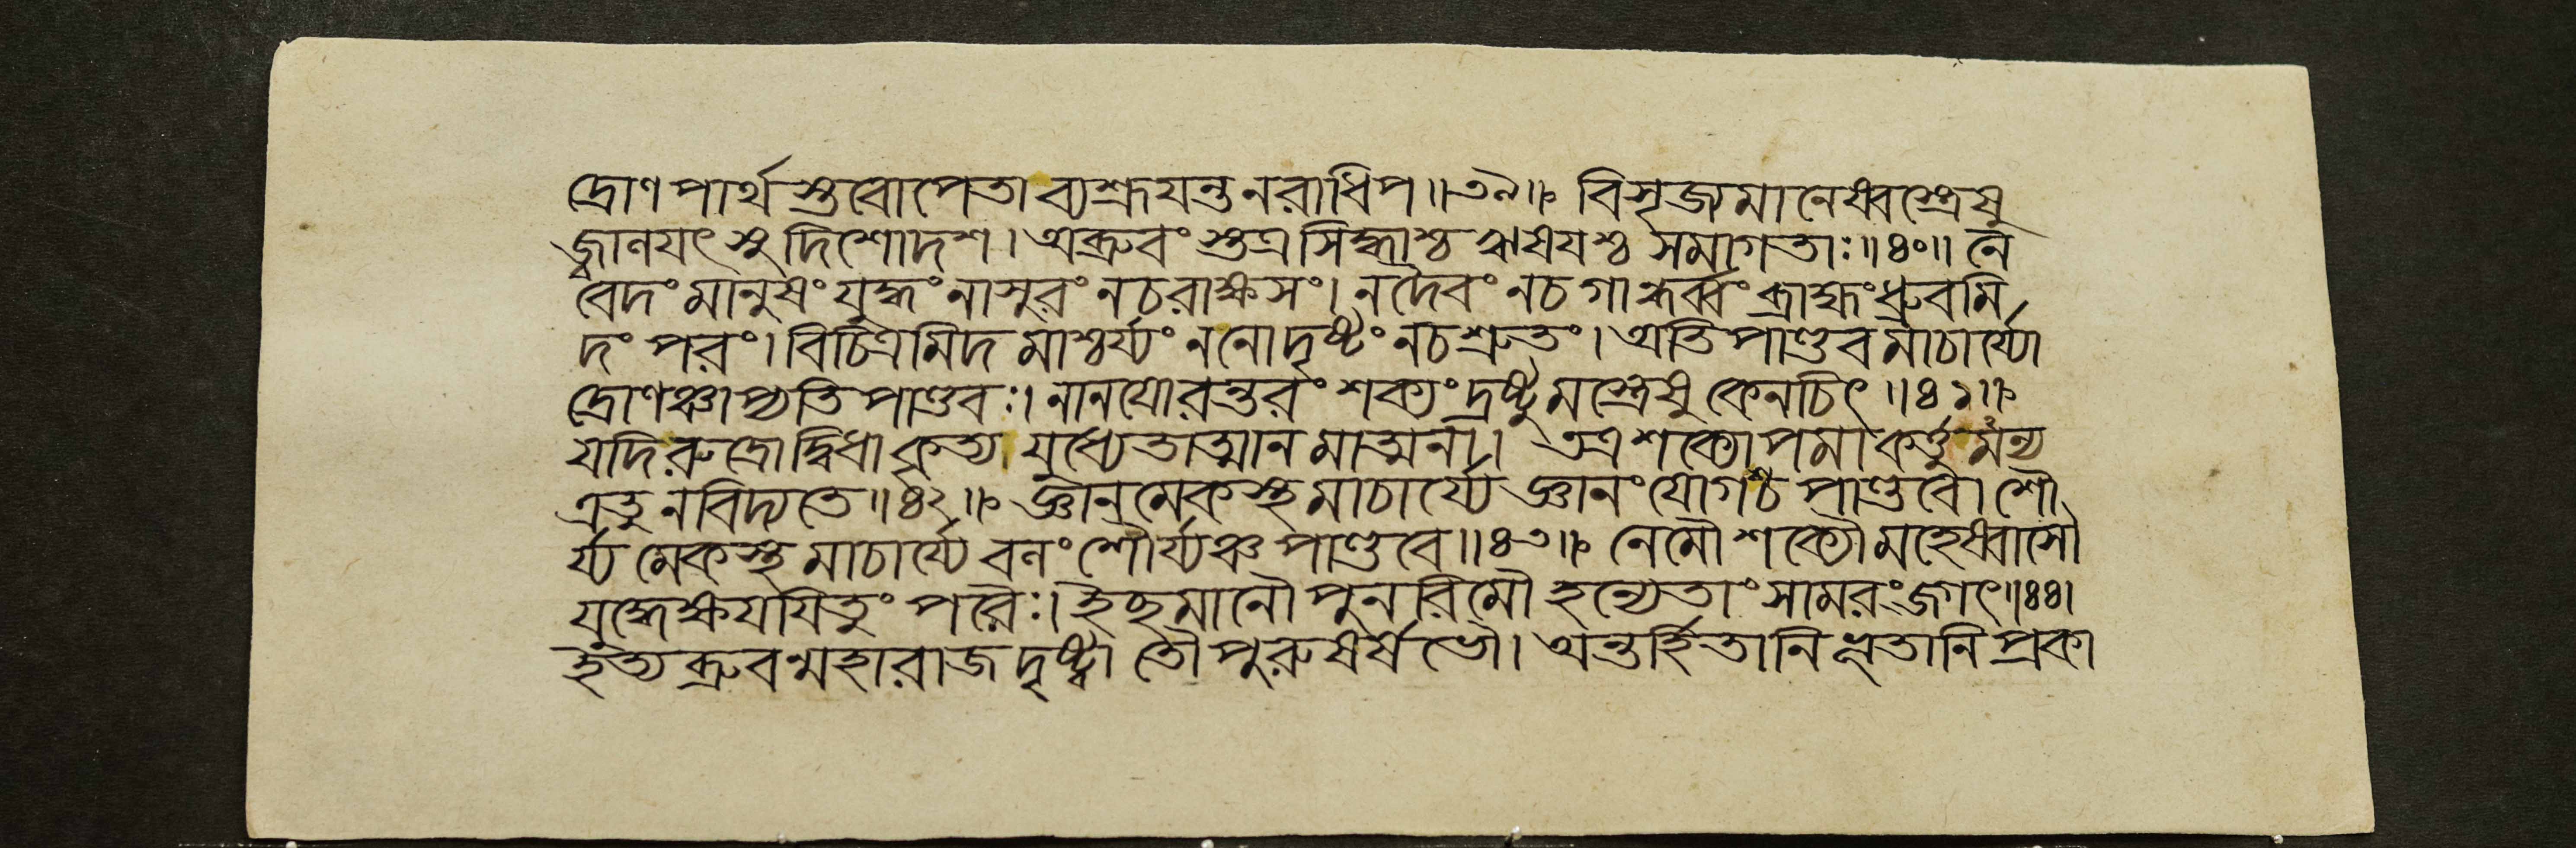 দ্রোণপার্থস্তবোপেতা ব্যশ্রূযন্ত নরাধিপ॥৩৯॥ বিসৃজমানেষ্বস্ত্রেষু
জ্বালযৎসু দিশোদশ। অব্রুবং স্তত্র সিদ্ধাশ্চ ঋষযশ্চ সমাগতাঃ॥৪০॥ নৈ
বেদং মানুষং যুদ্ধং নাসুরং নচরাক্ষসং। ন দৈবং নচ গান্ধর্ব্বং ব্রাহ্মং ধ্রুবমি
দং পরং। বিচিত্রমিদমাশ্চর্য্যং ননোদৃষ্টং নচশ্রুতং। অতি পাণ্ডবমাচার্য্যো
দ্রোণঞ্চাপ্যতি পাণ্ডবঃ। নানযোরন্তরং শক্যং দ্রষ্টুমস্ত্রেষু কেনচিৎ॥৪১॥
যদি রুদ্রো দ্বিধাকৃত্য যুধ্যেতাত্মানমাত্মনা। তত্র শক্যোপমা কর্ত্তুমন্য
ত্রতু ন বিদ্যতে॥৪২॥ জ্ঞানমেকস্থমাচার্য্যে জ্ঞানং যোগশ্চ পাণ্ডবে। শৌ
র্য্যমেকস্থমাচার্য্যে বলং শৌর্য্যঞ্চ পাণ্ডবে॥৪৩॥ নেমৌ শক্যৌ মহেষ্বাসৌ
যুদ্ধে ক্ষযযিতুং পরৈঃ। ইছমানৌ পুনরিমৌ হন্যেতাং সামরংজগৎ॥৪৪।
ইত্যব্রুবন্মহারাজ দৃষ্ট্বা তৌ পুরুষর্ষভৌ। অন্তর্হিতানি ভূতানি প্রকা